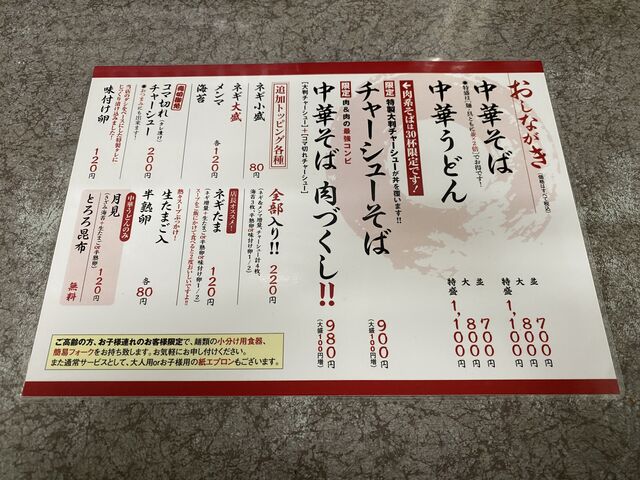 おしながき
(価格はすべて税込)
中華そば
並 700円
大 800円
特盛 1,100円
中華うどん
並 700円
大 800円
特盛 1,100円
←肉系そばは30杯限定です!
限定 特製大判チャーシューが丼を覆います!!
チャーシューそば
900円
(大盛100円増)
限定 肉&肉の最強コンビ
中華そば 肉づくし!!
[大判チャーシュー]+[コマ切れチャーシュー]
980円
(大盛100円増)
追加トッピング各種
ネギ小盛 80円
ネギ大盛
メンマ
海苔
各120円
コマ切れ(タレ漬け)
チャーシュー 200円
味付け卵 120円
全部入り!! 220円
店長オススメ!
ネギたま 120円
生たまご入
半熟卵
各80円
中華うどんのみ
月見 120円
とろろ昆布 無料
ご高齢の方、お子様連れのお客様限定で、麺類の小分け用食器、
簡易フォークをお持ち致します。お気軽にお申し付けください。
また通常サービスとして、大人用orお子様用の紙エプロンもございます。